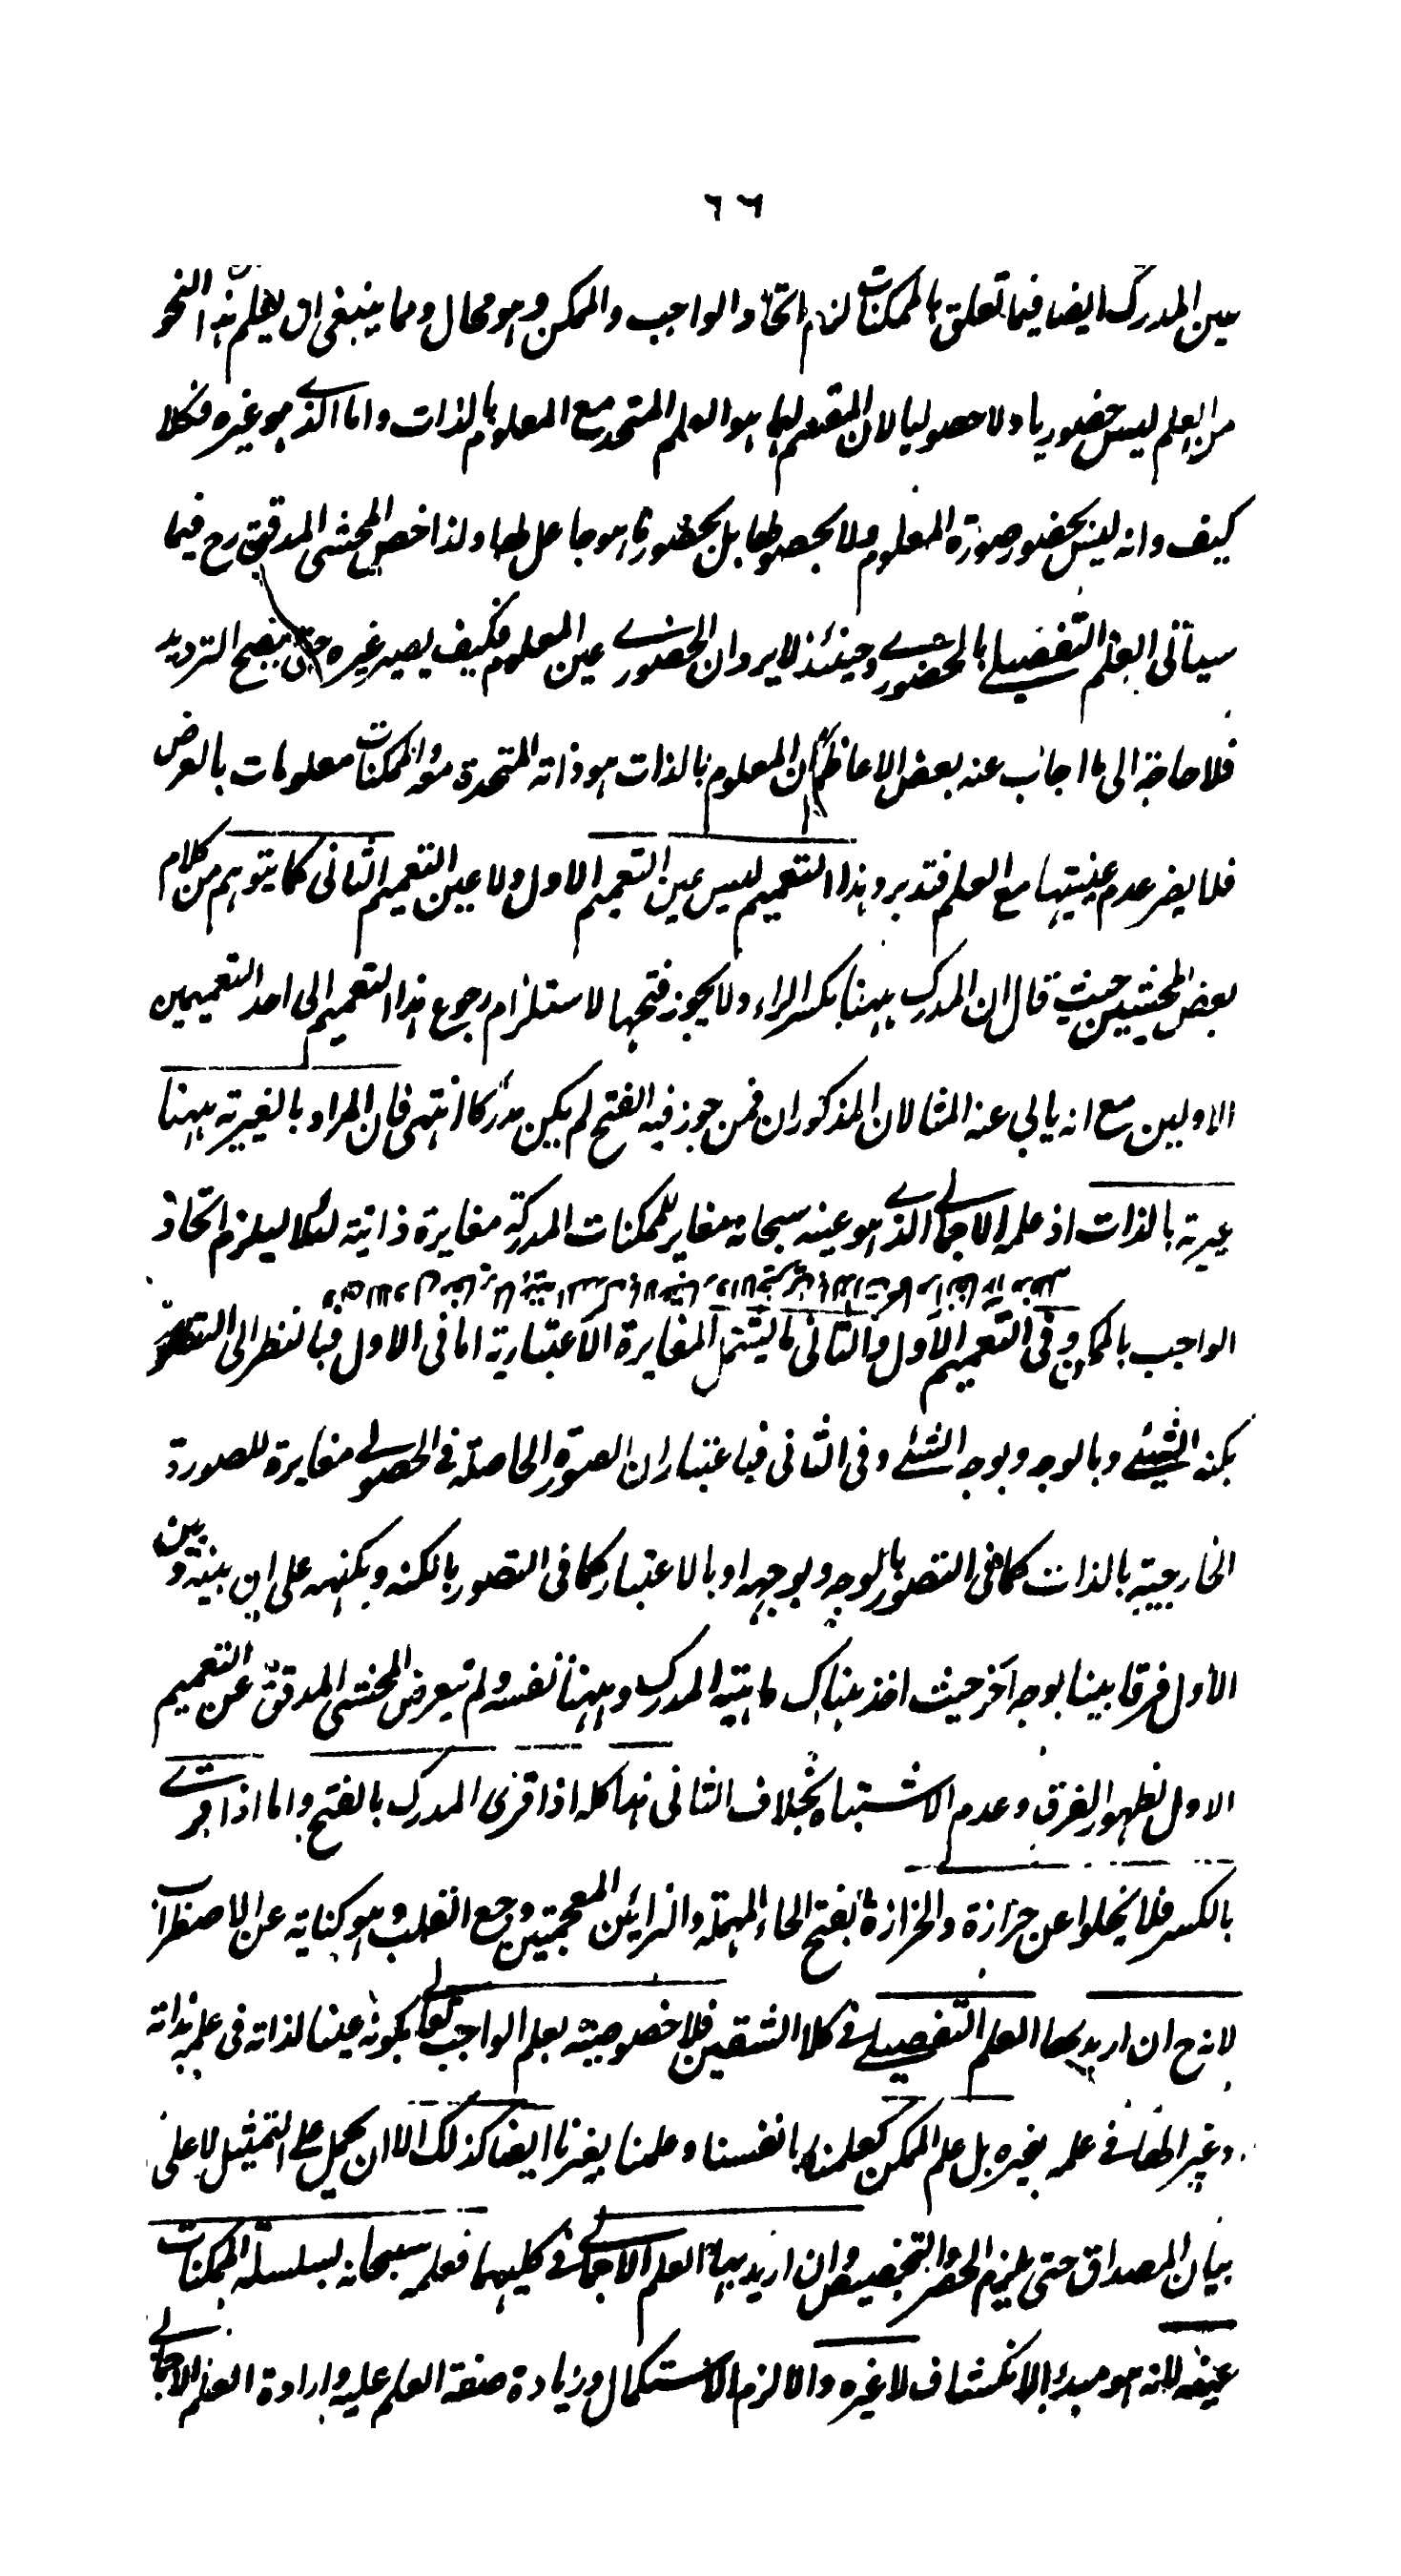 ٦٦
عين المدرك ايضا فيما تعلق بالممكنات لزم اتحاد الواجب والممكن وهو محال ومما ينبغى ان يعلم ان هذا النحو
من العلم ليس حضوريا ولا حصوليا لان المقسم لهما هو العلم المتحد مع المعلوم بالذات واما الذے هو غيره فكلا
كيف وانه ليس بحضور صورة المعلوم ولا بحصولها بل بحضور ما هو جاعل لها ولذا خص المحشى المدقق رح فيما
سيأتى العلم التفصيلے بالحضورے وحينئذ لا يرد ان الحضورے عين المعلوم فكيف يصير غيره حتى يصح الترديد
فلا حاجة الى ما اجاب عنه بعض الاعاظم ان المعلوم بالذات هو ذاته المتحدة معه والممكنات معلومات بالعرض
فلا يضر عدم عينيتها مع العلم فتدبر وهذا التعميم ليس عين التعميم الاول ولا عين التعميم الثانى كما يتوهم من كلام
بعض المحشيين حيث قال ان المدرك ههنا بكسر الراء ولا يجوز فتحها لاستلزام رجوع هذا التعميم الى احد التعميمين
الاولين مع انه يابى عنه المثالان المذكوران فمن جوز فيه الفتح لم يكن مدركا انتهى فان المراد بالغيرية ههنا
غيرية بالذات اذ علمه الاجمالے الذے هو عينه سبحانه مغاير للممكنات المدركة مغايرة ذاتية لئلا يلزم اتحاد
الواجب بالممكن وفى التعميم الاول والثانى ما يشتمل المغايرة الاعتبارية اما فى الاول فبالنظر الى التصور
بكنه الشيئے وبالوجه وبوجه الشئے وفى الثانى فباعتبار ان الصورة الحاصلة فے الحصولے مغايرة للصورة
الخارجية بالذات كما فى التصور بالوجه وبوجهه او بالاعتبار كما فى التصور بالكنه وبكنهه على ان بينه وبين
الاول فرقا بينا بوجه آخر حيث اخذ هناك ماهية المدرك وههنا نفسه ولم يتعرض المحشى المدقق عن التعميم
الاول لظهور الفرق وعدم الاشتباه بخلاف الثانى هذا كله اذا قرئ المدرك بالفتح واما اذا قرے
بالكسر فلا يخلوا عن حزازة والحزازة بفتح الحاء المهملة والزائين المعجمتين وجع القلب وهو كناية عن الاضطراب
لانه ح ان اريد بهما العلم التفصيلے فے كلا الشقين فلا خصوصية بعلم الواجب تعالے بكونه عينا لذاته فى علمه بذاته
وغيرا لها فے علمه بغيره بل علم الممكن كعلمنا بانفسنا وعلمنا بغيرنا ايضا كذلك الا ان يحمل علے التمثيل لا على
بيان المصداق حتى يلزم الحصر والتخصيص وان اريد بهما العلم الاجمالے فے كليهما فعلمه سبحانه بسلسلة الممكنات
عينه لانه هو مبدء الانكشاف لا غيره والا لزم الاستكمال وزيادة صفة العلم عليه وارادة العلم الاجمالے